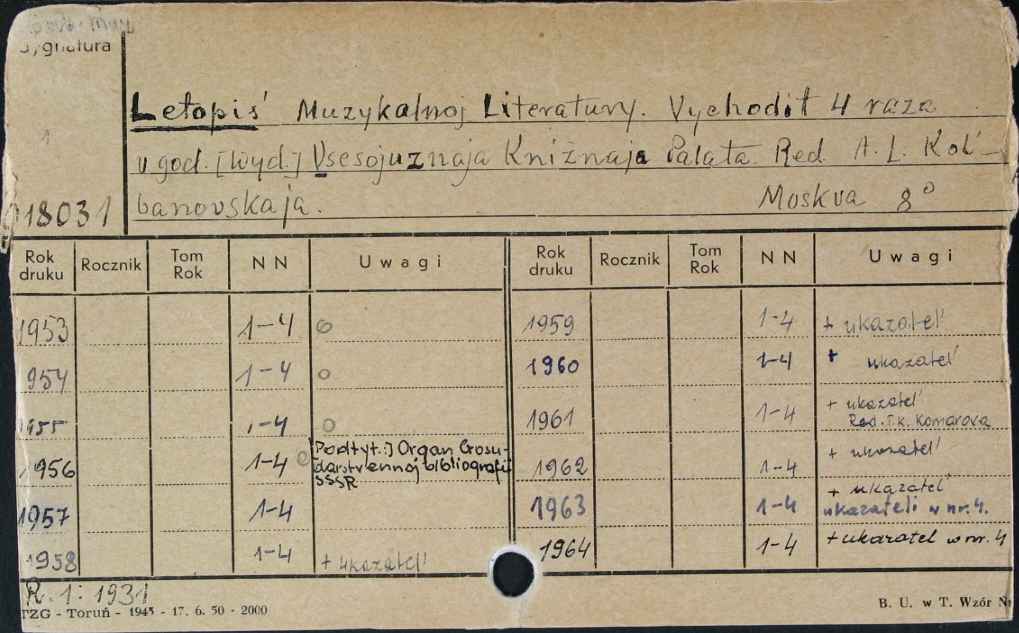 Sygnatura
Letopiś Muzykalnoj Literatury. Vychodit 4 raza
v god. [Wyd.] Vsesojuznaja Kniżnaja Palata. Red. A. L. Kol-
banovskaja. Moskva 8°
18031
Rok druku Rocznik Tom Rok N N Uwagi Rok druku Rocznik Tom Rok N N Uwagi
1953 1-4 o 1959 1-4 + ukazatel'
1954 1-4 o 1960 1-4 + ukazatel'
1955 1-4 o 1961 1-4 + ukazatel' Red. T.K. Komarova
1956 1-4 o [Podtyt.:] Organ Gosudarstviennoj bibliografii SSSR 1962 1-4 + ukazatel'
1957 1-4 1963 1-4 + ukazatel' ukazateli w nr. 4.
1958 1-4 + ukazatel' 1964 1-4 + ukazatel w nr. 4
R. 1: 1931
TZG - Toruń - 1945 - 17. 6. 50 - 2000 B. U. w T. Wzór Nr